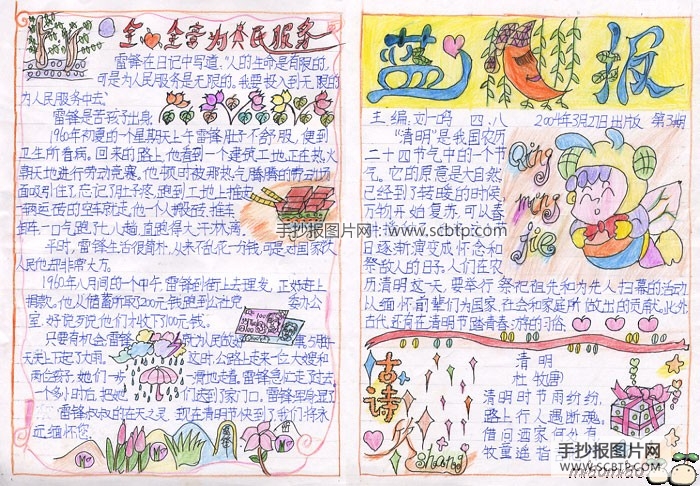 全心全意为人民服务
雷锋在日记中写道:"人的生命是有限的,
可是为人民服务是无限的。我要投入到无限的
为人民服务中去。"
雷锋是苦孩子出身
1960年初夏的一个星期天上午雷锋肚子不舒服,便到
卫生所看病。回来的路上,他看到一个建筑工地正在热火
朝天地进行劳动竞赛。他顿时被那热气腾腾的劳动场
面吸引住了,忘记了肚子疼,跑到工地上推起
一辆运砖的空车就走,他一个人搬砖,推车
一口气跑了七八趟,直跑得大汗淋漓。
平时,雷锋生活很简朴,从来不乱花一分钱,可是对国家
人民他却非常大方。
1960年八月间的一个中午,雷锋到街上去理发,正好赶上
捐款。他从储蓄所取200元钱跑到公社党委办公
室,好说歹说他们才收下100元钱。
只要有机会雷锋就为人民做好事
天天上下起了大雨。这时,公路上走来一位大嫂和
两位孩子,她们一步一滑地走着,雷锋急忙走了过去
一个多小时后把她们送到了家门口,雷锋浑身湿了
雷锋叔叔的在天之灵,现在清明节快到了我们将永
远缅怀您。
雷锋
蓝月报
主编:刘一鸣 四.八 2009年3月27日出版 第3期
"清明"是我国农历
二十四节气中的一个节
气。它的原意是大自然
已经到了转暖的时候
万物开始复苏,可以春
耕
日逐渐演变成怀念和
祭敌人的日子。人们在农
历清明这一天,要举行祭祀祖先和为先人扫墓的活动
以缅怀前辈们为国家、社会和家庭所做出的贡献。此外
古代还有在清明节踏青春游的习俗。
Qing
ming
jie
古诗
欣
shang
清明
杜牧
清明时节雨纷纷,
路上行人欲断魂。
借问酒家何处有
牧童遥指
手抄报图片网
www.scbtp.com
手抄报图片网
WWW.SCBTP.COM